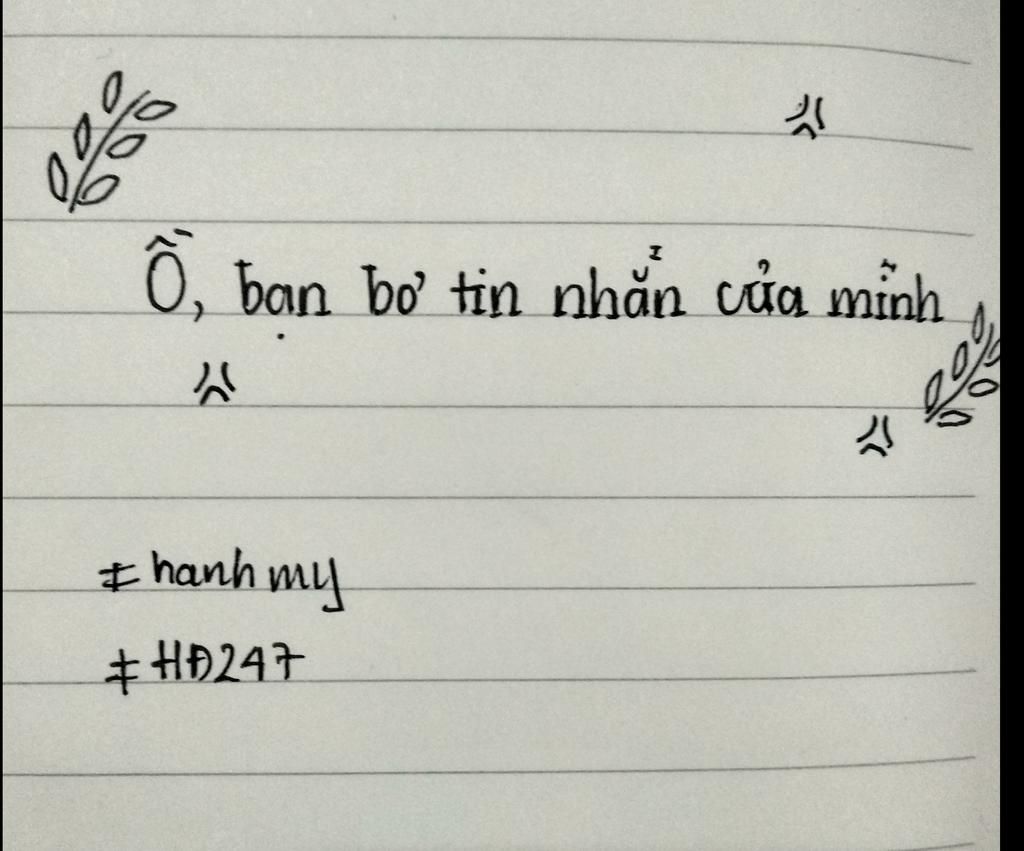 Ồ, bạn bơ tin nhắn của mình
#hanhmy
#HĐ247